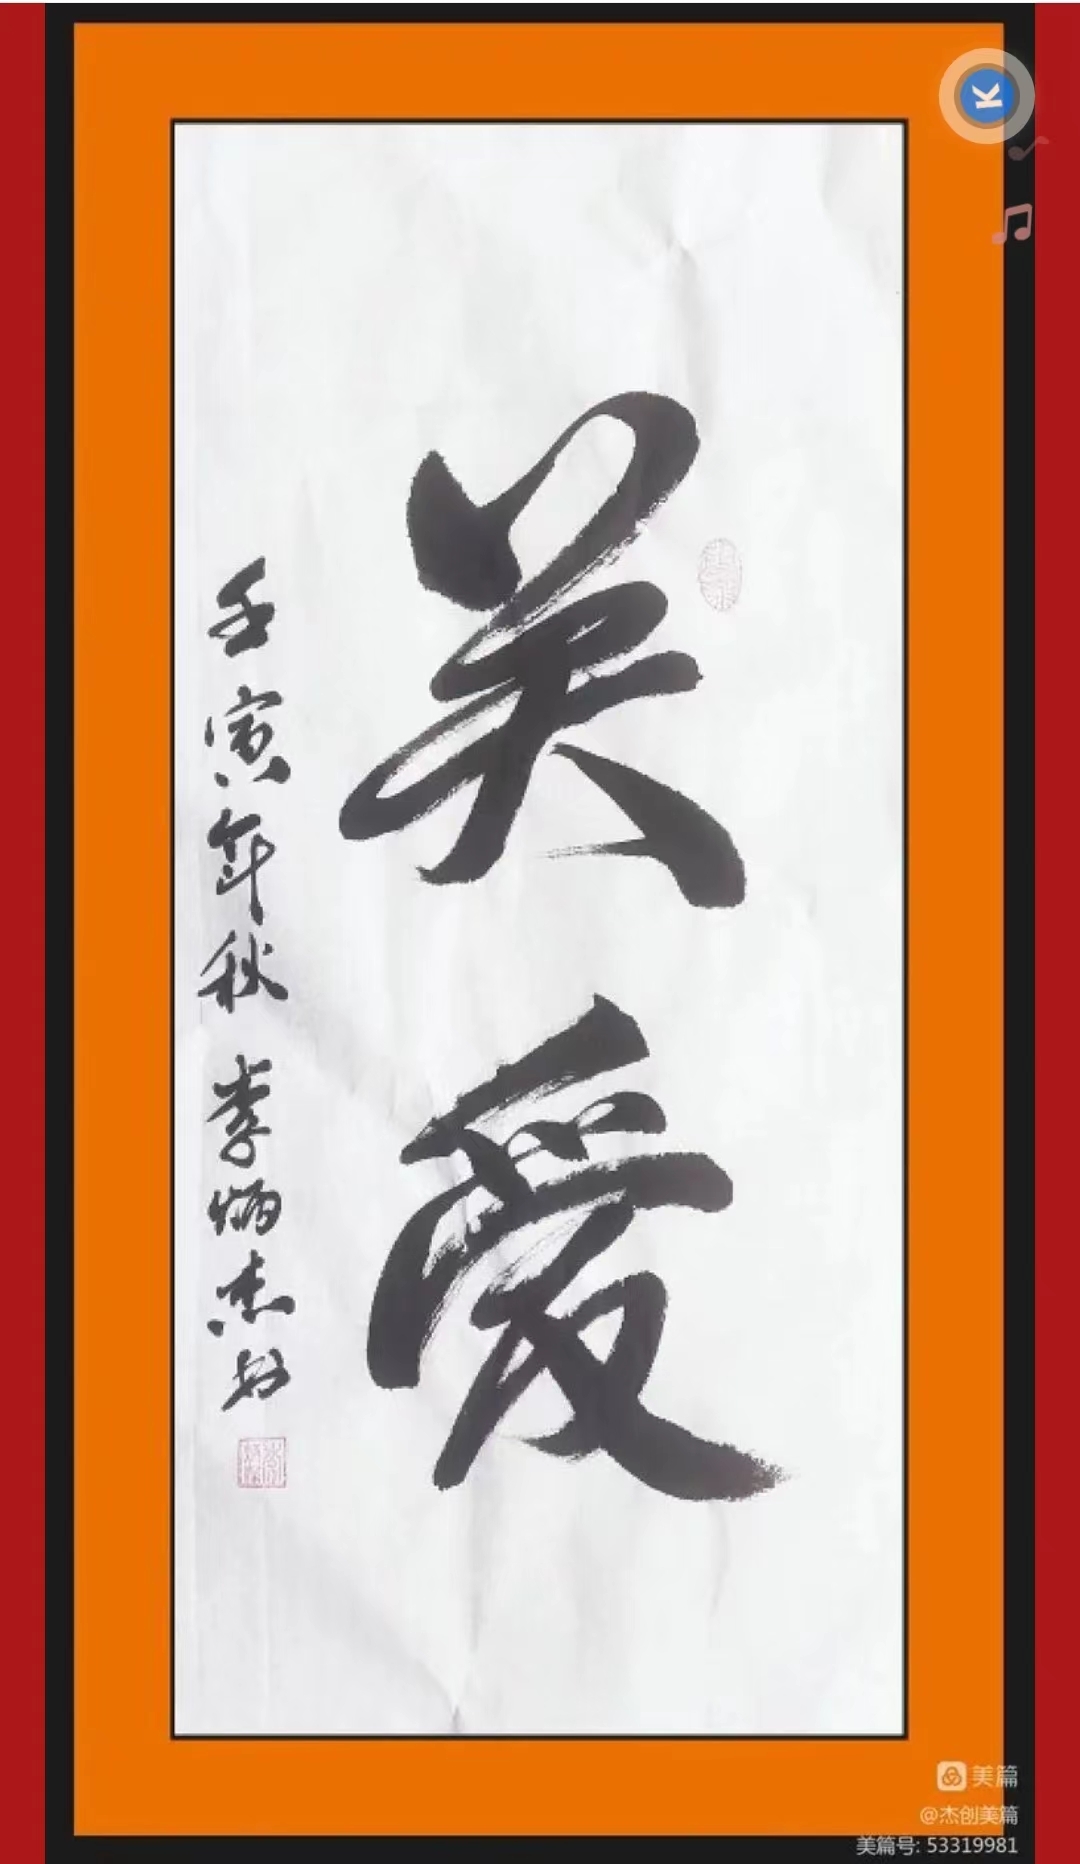 关爱
壬寅年秋 李炳杰书
美篇
@杰创美篇
美篇号: 53319981